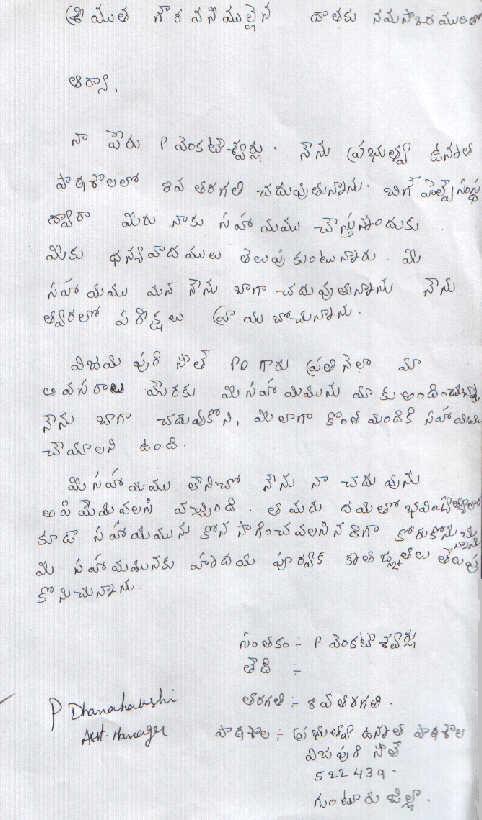 శ్రీయుత గౌరవనీయులైన దాతకు నమస్కారములతో
ఆర్యా,
నా పేరు P వెంకటేశ్వర్లు. నేను ప్రభుత్వ ఉన్నత
పాఠశాలలో 8వ తరగతి చదువుచున్నాను.
ద్వారా మీరు నాకు సహాయము చేస్తున్నందుకు
మీకు ధన్యవాదములు తెలుపుకుంటున్నాను. మీ
సహాయము వలన నేను బాగా చదువుతున్నాను నేను
త్వరలో పరీక్షలు వ్రాయబోచున్నాను.
విజయపురి సౌత్ PO గారు ప్రతినెలా మా
అవసరాల కొరకు మీ సహాయమును మాకు అందించుచున్నారు
నేను బాగా చదువుకొని, మీలాగా కొంత మందికి సహాయము
చేయాలని ఉంది.
మీ సహాయము లేనిచో నేను నా చదువును
ఆపివేయవలసి వచ్చేది. తమరు దయతో భవిష్యత్తులో
కూడా సహాయమును కొనసాగించవలసినదిగా కోరుకొనుచున్నాను
మీ సహాయమునకు హృదయ పూర్వక కృతజ్ఞతలు తెలుపు
కొనుచున్నాను.
సంతకం :- P వెంకటేశ్వర్లు
తేది :-
తరగతి :- 8వ తరగతి.
పాఠశాల :- ప్రభుత్వ ఉన్నత పాఠశాల
విజపురి సౌత్
522439.
గుంటూరు జిల్లా.
P Dhanalakshmi
Asst. Manager